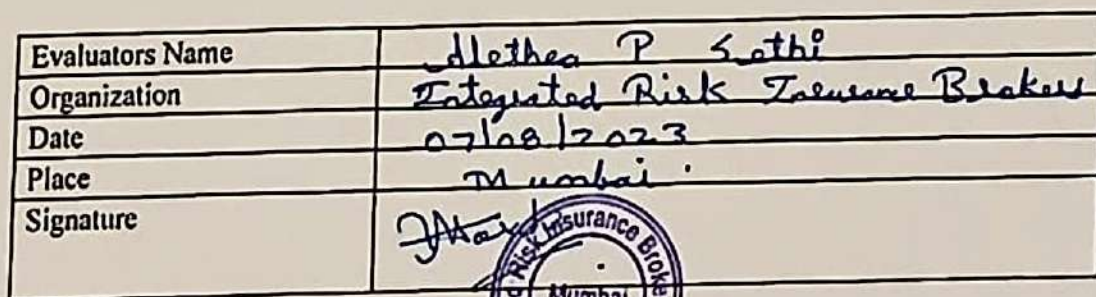 Evaluators Name Alethea P Sethi
Organization Integrated Risk Insurance Brokers
Date 07/08/2023
Place Mumbai.
Signature
Risk Insurance Broke
Mumbai